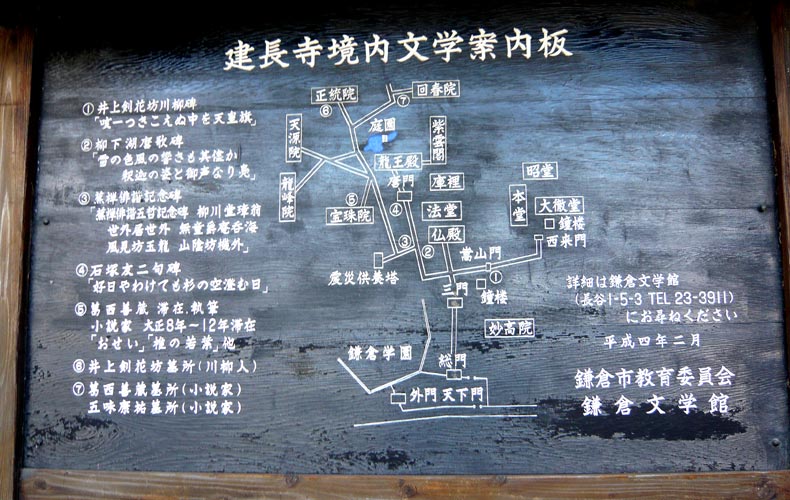 建長寺境内文学案内板
① 井上剣花坊川柳碑
「咳一つきこえぬ中を天皇旗」
② 柳下湖唐歌碑
「雪の色風の響きも其儘か
釈迦の姿と御声なり亮」
③ 蕉禅俳諧記念碑
「蕉禅俳諧五哲記念碑 柳川堂璋翁
世外居世外 無量爵庵香海
風見坊玉龍 山陰坊機外」
④ 石塚友二句碑
「好日やわけても杉の空澄む日」
⑤ 葛西善蔵 滞在.執筆
小説家 大正8年~12年滞在
「おせい」「椎の若葉」他
⑥ 井上剣花坊墓所(川柳人)
⑦ 葛西善蔵墓所(小説家)
五味康祐墓所(小説家)
正統院
⑥
⑦
回春院
天源院
庭園
紫雲閣
龍王殿
龍峰院
唐門
庫裡
④
⑤
宝珠院
法堂
仏殿
③
②
昭堂
本堂
大徹堂
鐘楼
西来門
嵩山門
①
鐘楼
震災供養塔
三門
妙高院
鎌倉学園
総門
外門 天下門
詳細は鎌倉文学館
(長谷1-5-3 TEL 23-3911)
にお尋ねください
平成四年二月
鎌倉市教育委員会
鎌倉文学館